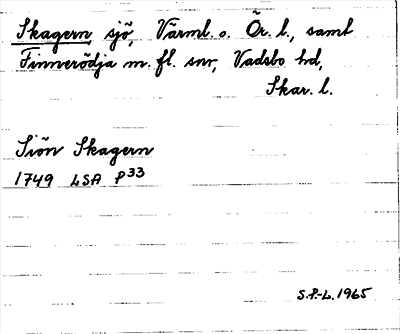 Skagern, sjö, Värml. o. Ör. l., samt
Finnerödja m. fl. snr, Vadsbo hd,
Skar. l.
Siön Skagern
1749 LSA P33
S.P.-L. 1965